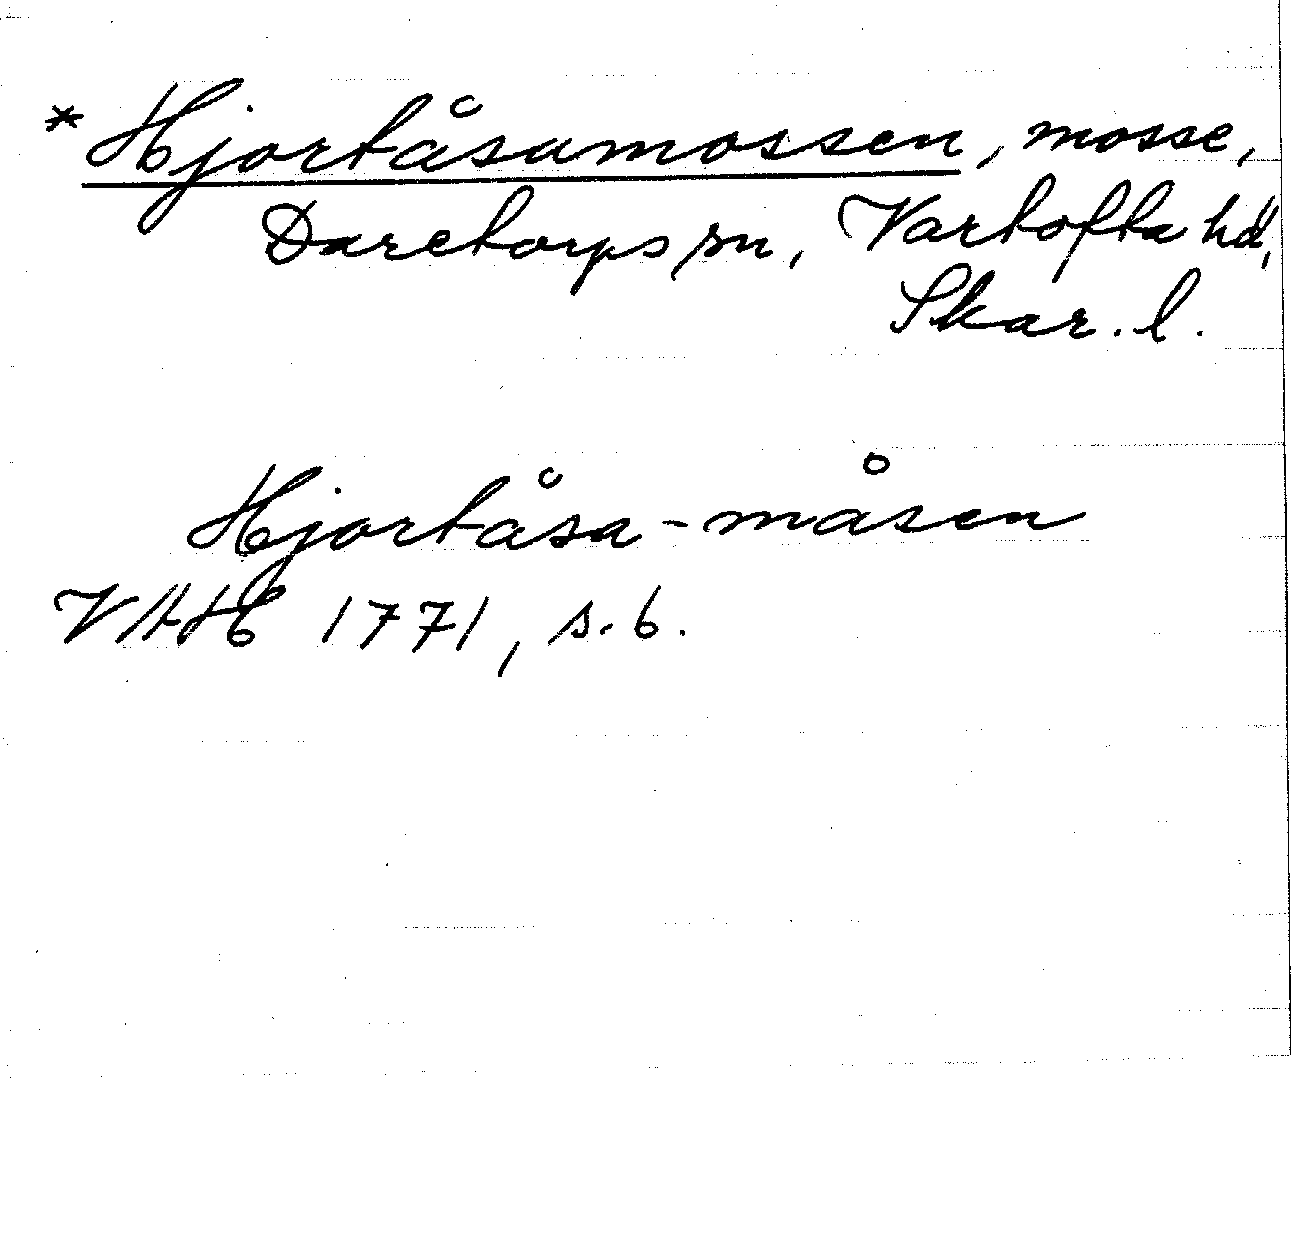 * Hjortåsamossen, mosse,
Daretorps sn, Vartofta hd,
Skar. l.
Hjortåsa-måsen
VAHE 1771, s. 6.